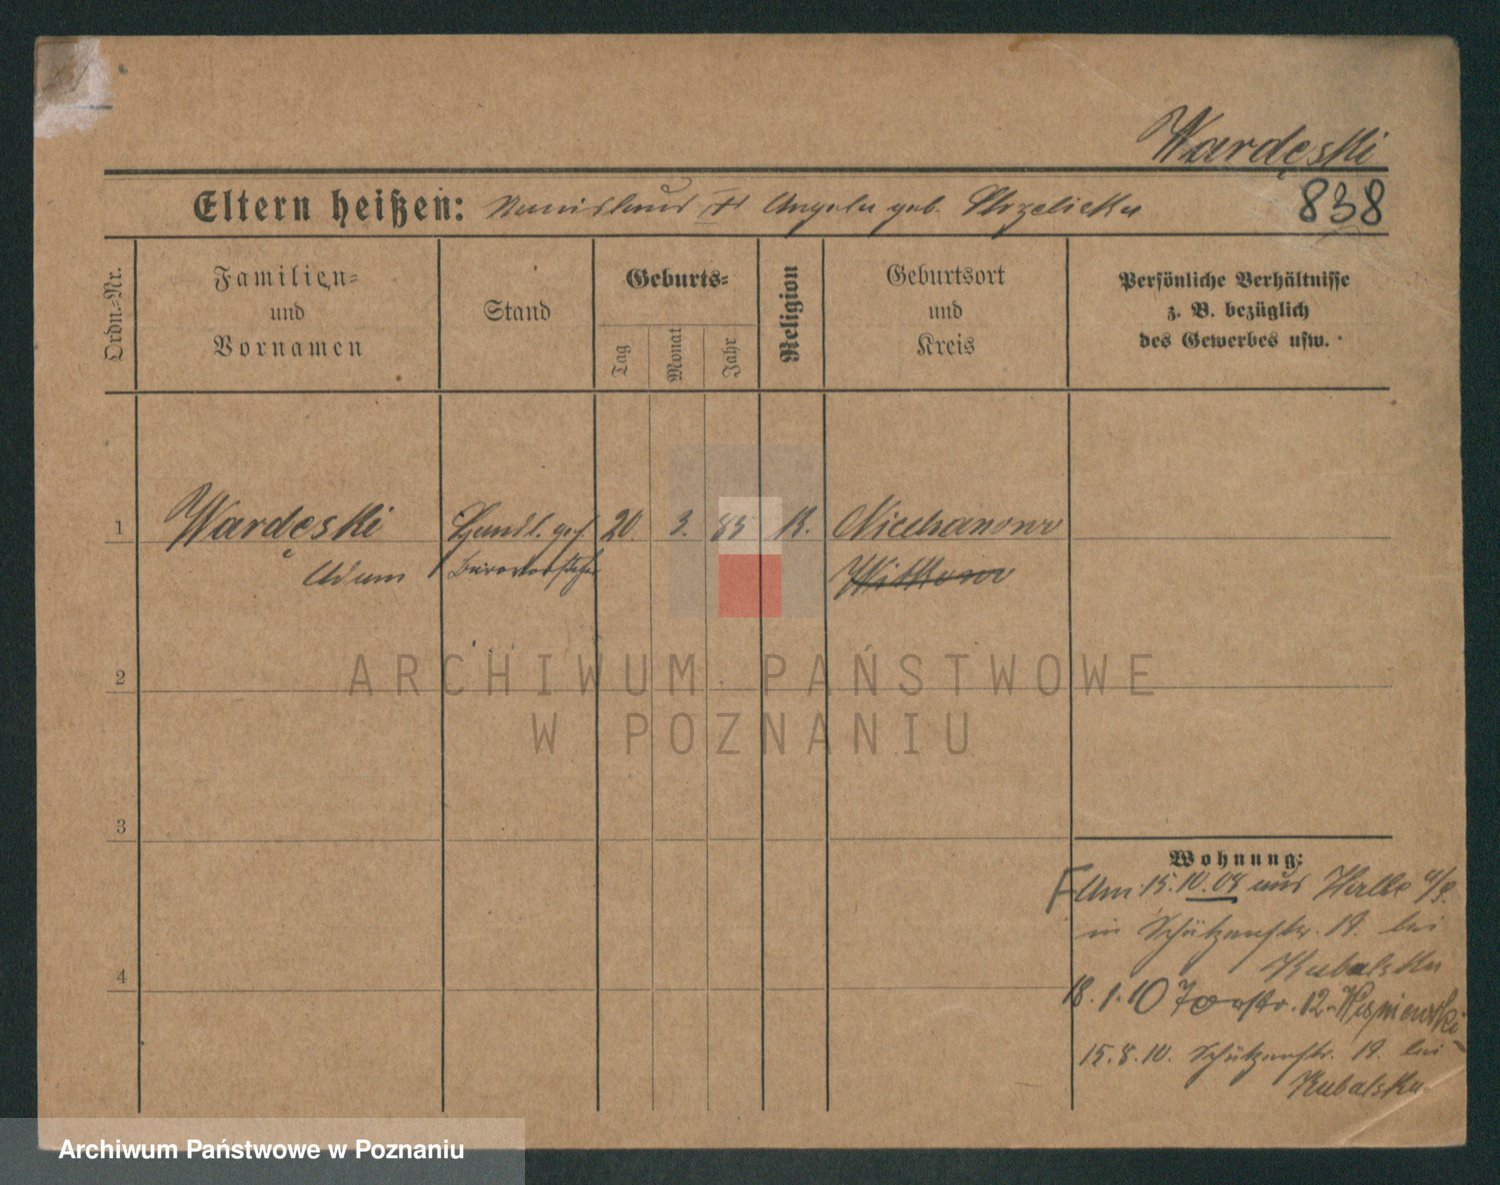 Wardęski
838
Eltern heißen: Stanislaus † Angela geb. Strzelicka
Ordn.-Nr.
Familien-
und
Vornamen
Stand
Geburts-
Tag
Monat
Jahr
Religion
Geburtsort
und
Kreis
Persönliche Verhältnisse
z. B. bezüglich
des Gewerbes usw.
1 Wardęski Handl. geh. 20. 3. 85 K. Niechanowo
Adam Bürovorsteher Witkowo
2
ARCHIWUM PAŃSTWOWE
W POZNANIU
3
Wohnung:
Am 15.10.09 aus Halle a/S.
in Schützenstr. 19. bei
Kubalska
4
18.1.10 Torstr. 12
15.8.10. Schützenstr. 19. bei
Kubalska
Archiwum Państwowe w Poznaniu